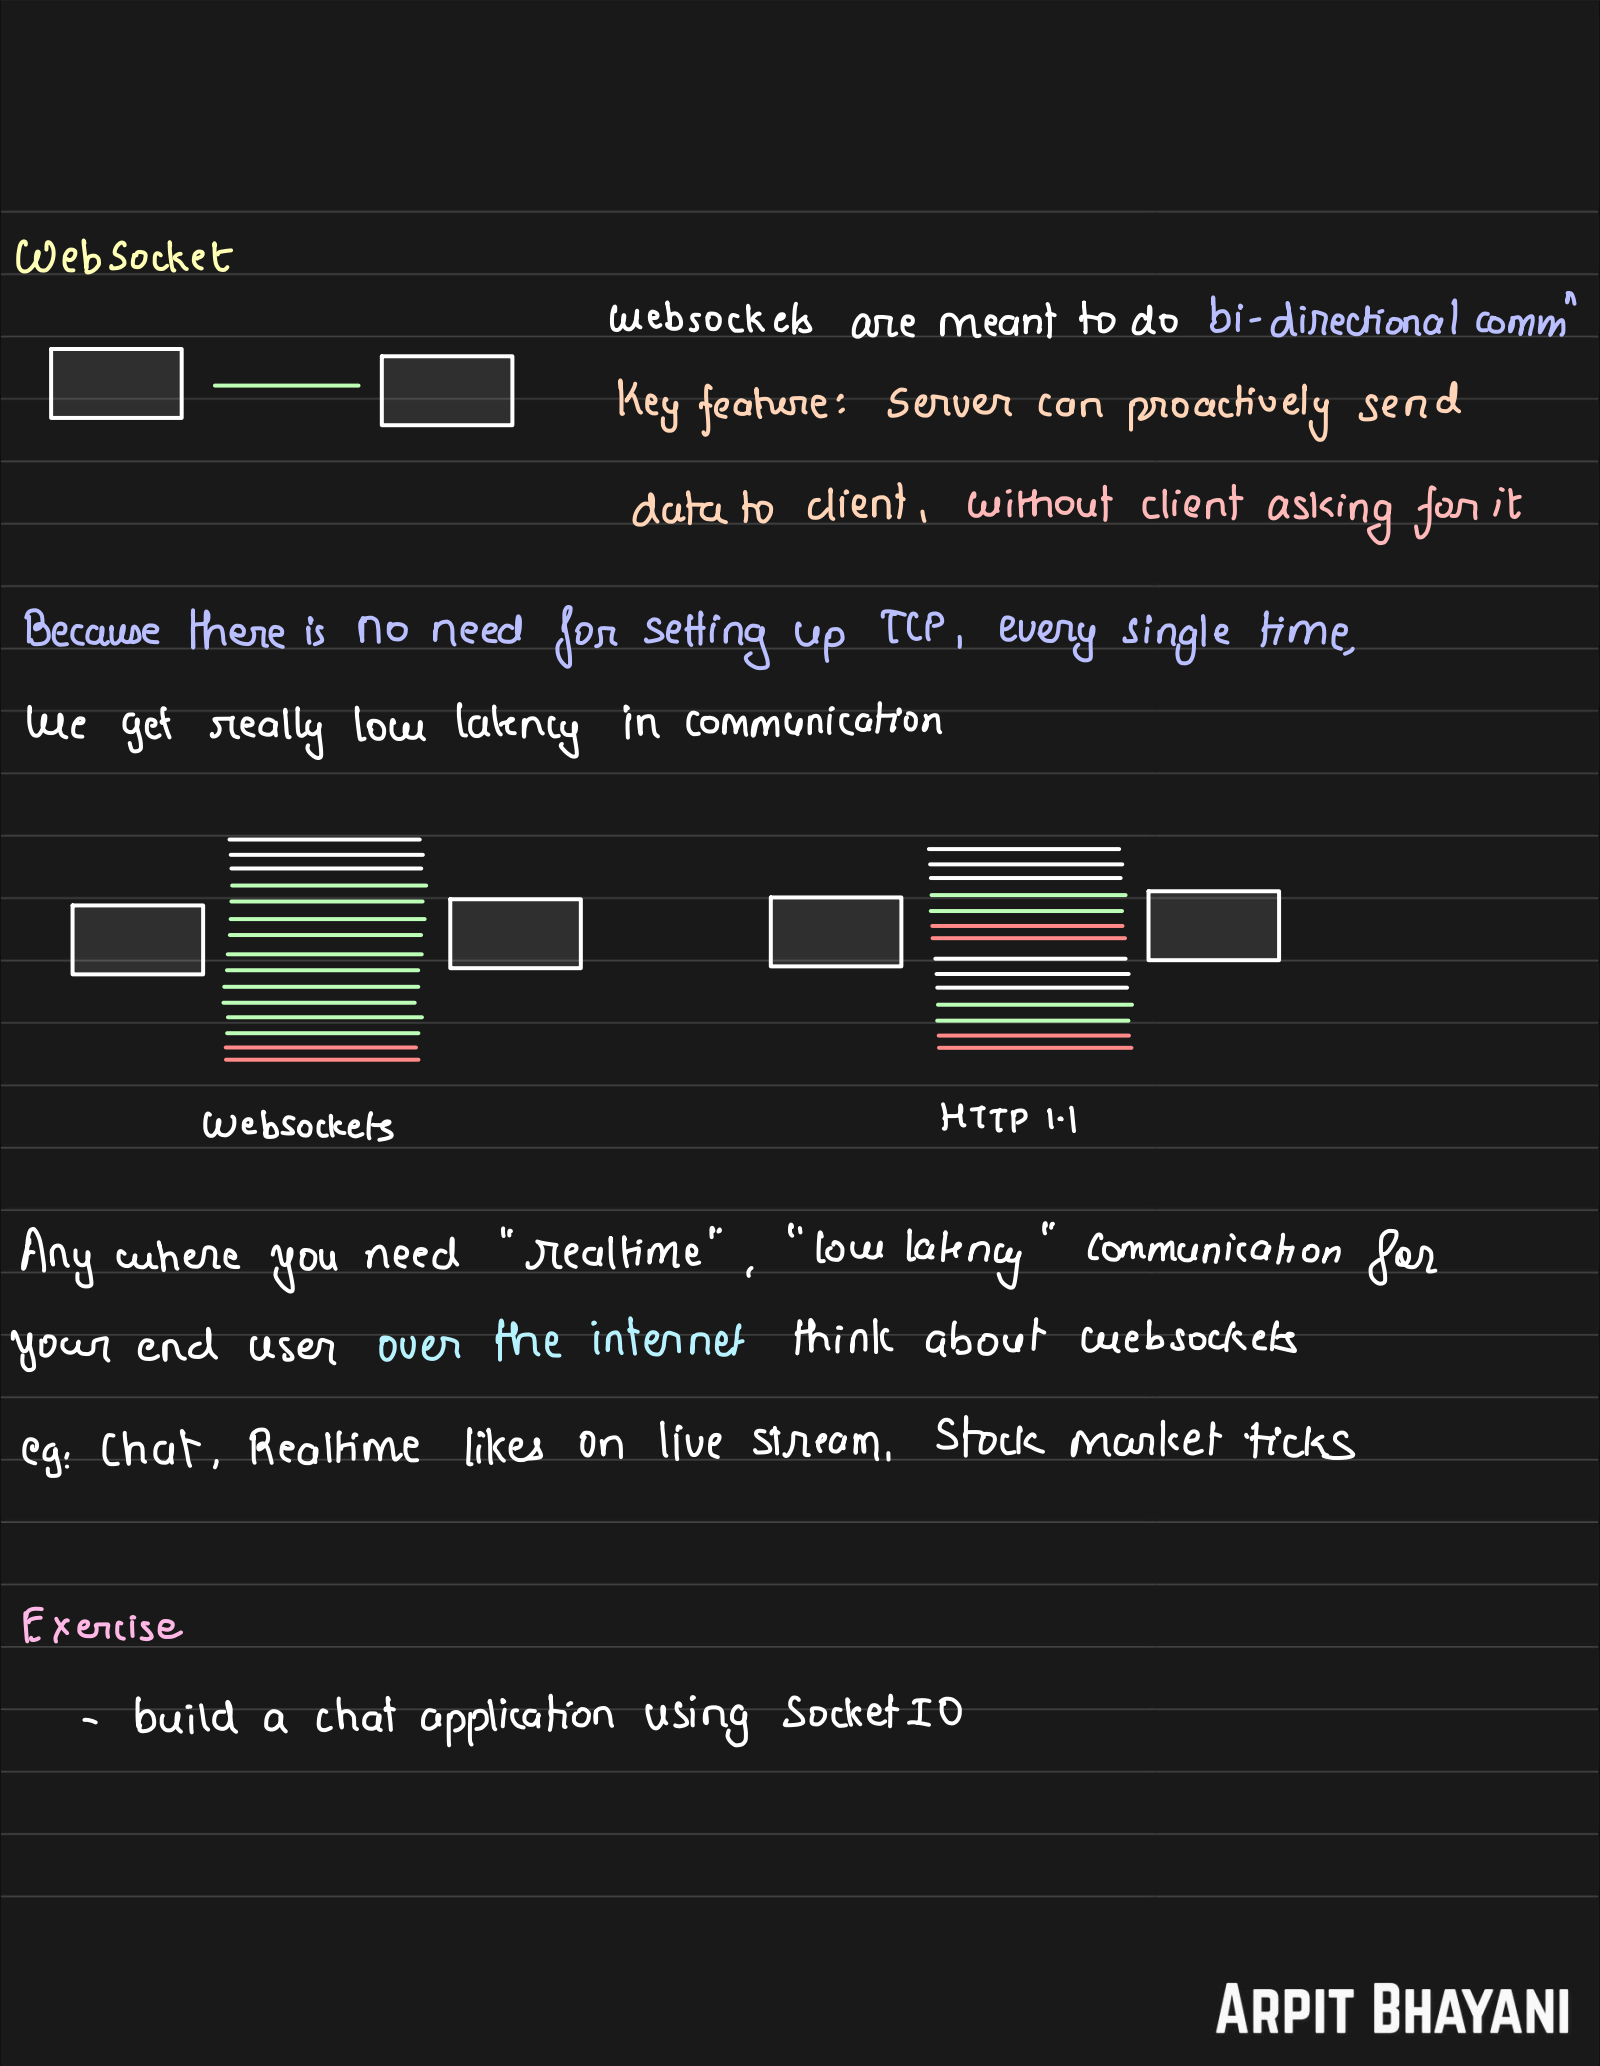 WebSocket
Websockets are meant to do bi-directional commⁿ
Key feature: Server can proactively send
data to client, without client asking for it
Because there is no need for setting up TCP, every single time,
We get really low latency in communication
Websockets
HTTP 1.1
Any where you need "realtime", "low latency" communication for
your end user over the internet think about websockets
eg: Chat, Realtime likes on live stream, Stock market ticks
Exercise
- build a chat application using SocketIO
ARPIT BHAYANI